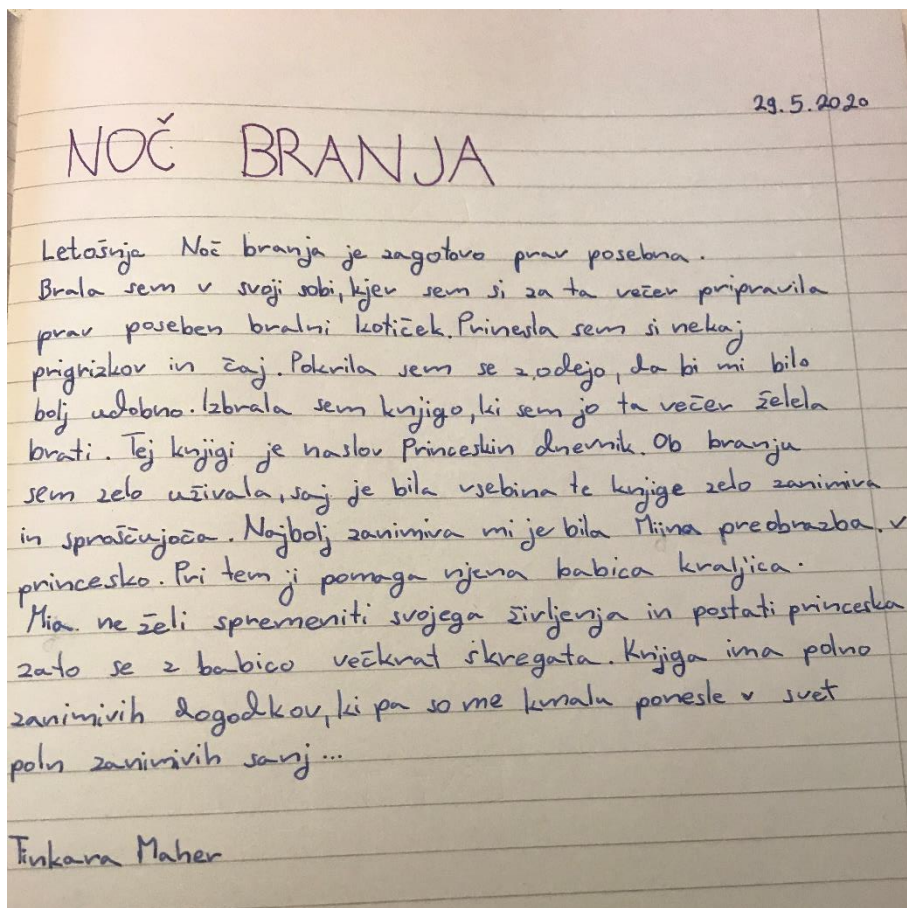 29.5.2020
NOČ BRANJA
Letošnja Noč branja je zagotovo prav posebna.
Brala sem v svoji sobi, kjer sem si za ta večer pripravila
prav poseben bralni kotiček. Prinesla sem si nekaj
prigrizkov in čaj. Pokrila sem se z odejo, da bi mi bilo
bolj udobno. Izbrala sem knjigo, ki sem jo ta večer želela
brati. Tej knjigi je naslov Princeskin dnevnik. Ob branju
sem zelo uživala, saj je bila vsebina te knjige zelo zanimiva
in sproščujoča. Najbolj zanimiva mi je bila Miina preobrazba v
princesko. Pri tem ji pomaga njena babica kraljica.
Mia ne želi spremeniti svojega življenja in postati princeska
zato se z babico večkrat skregata. Knjiga ima polno
zanimivih dogodkov, ki pa so me kmalu ponesle v svet
poln zanimivih sanj...
Tinkara Maher